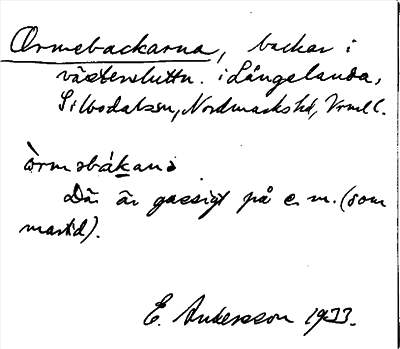 Ormebackarna, backar i
västersluttn. i Långelanda,
Silbodalssn, Nordmarkshd, Vrml.
òrməbákana.
Där är gassigt på e. m. (som
mattid).
E. Ankersson 1933.